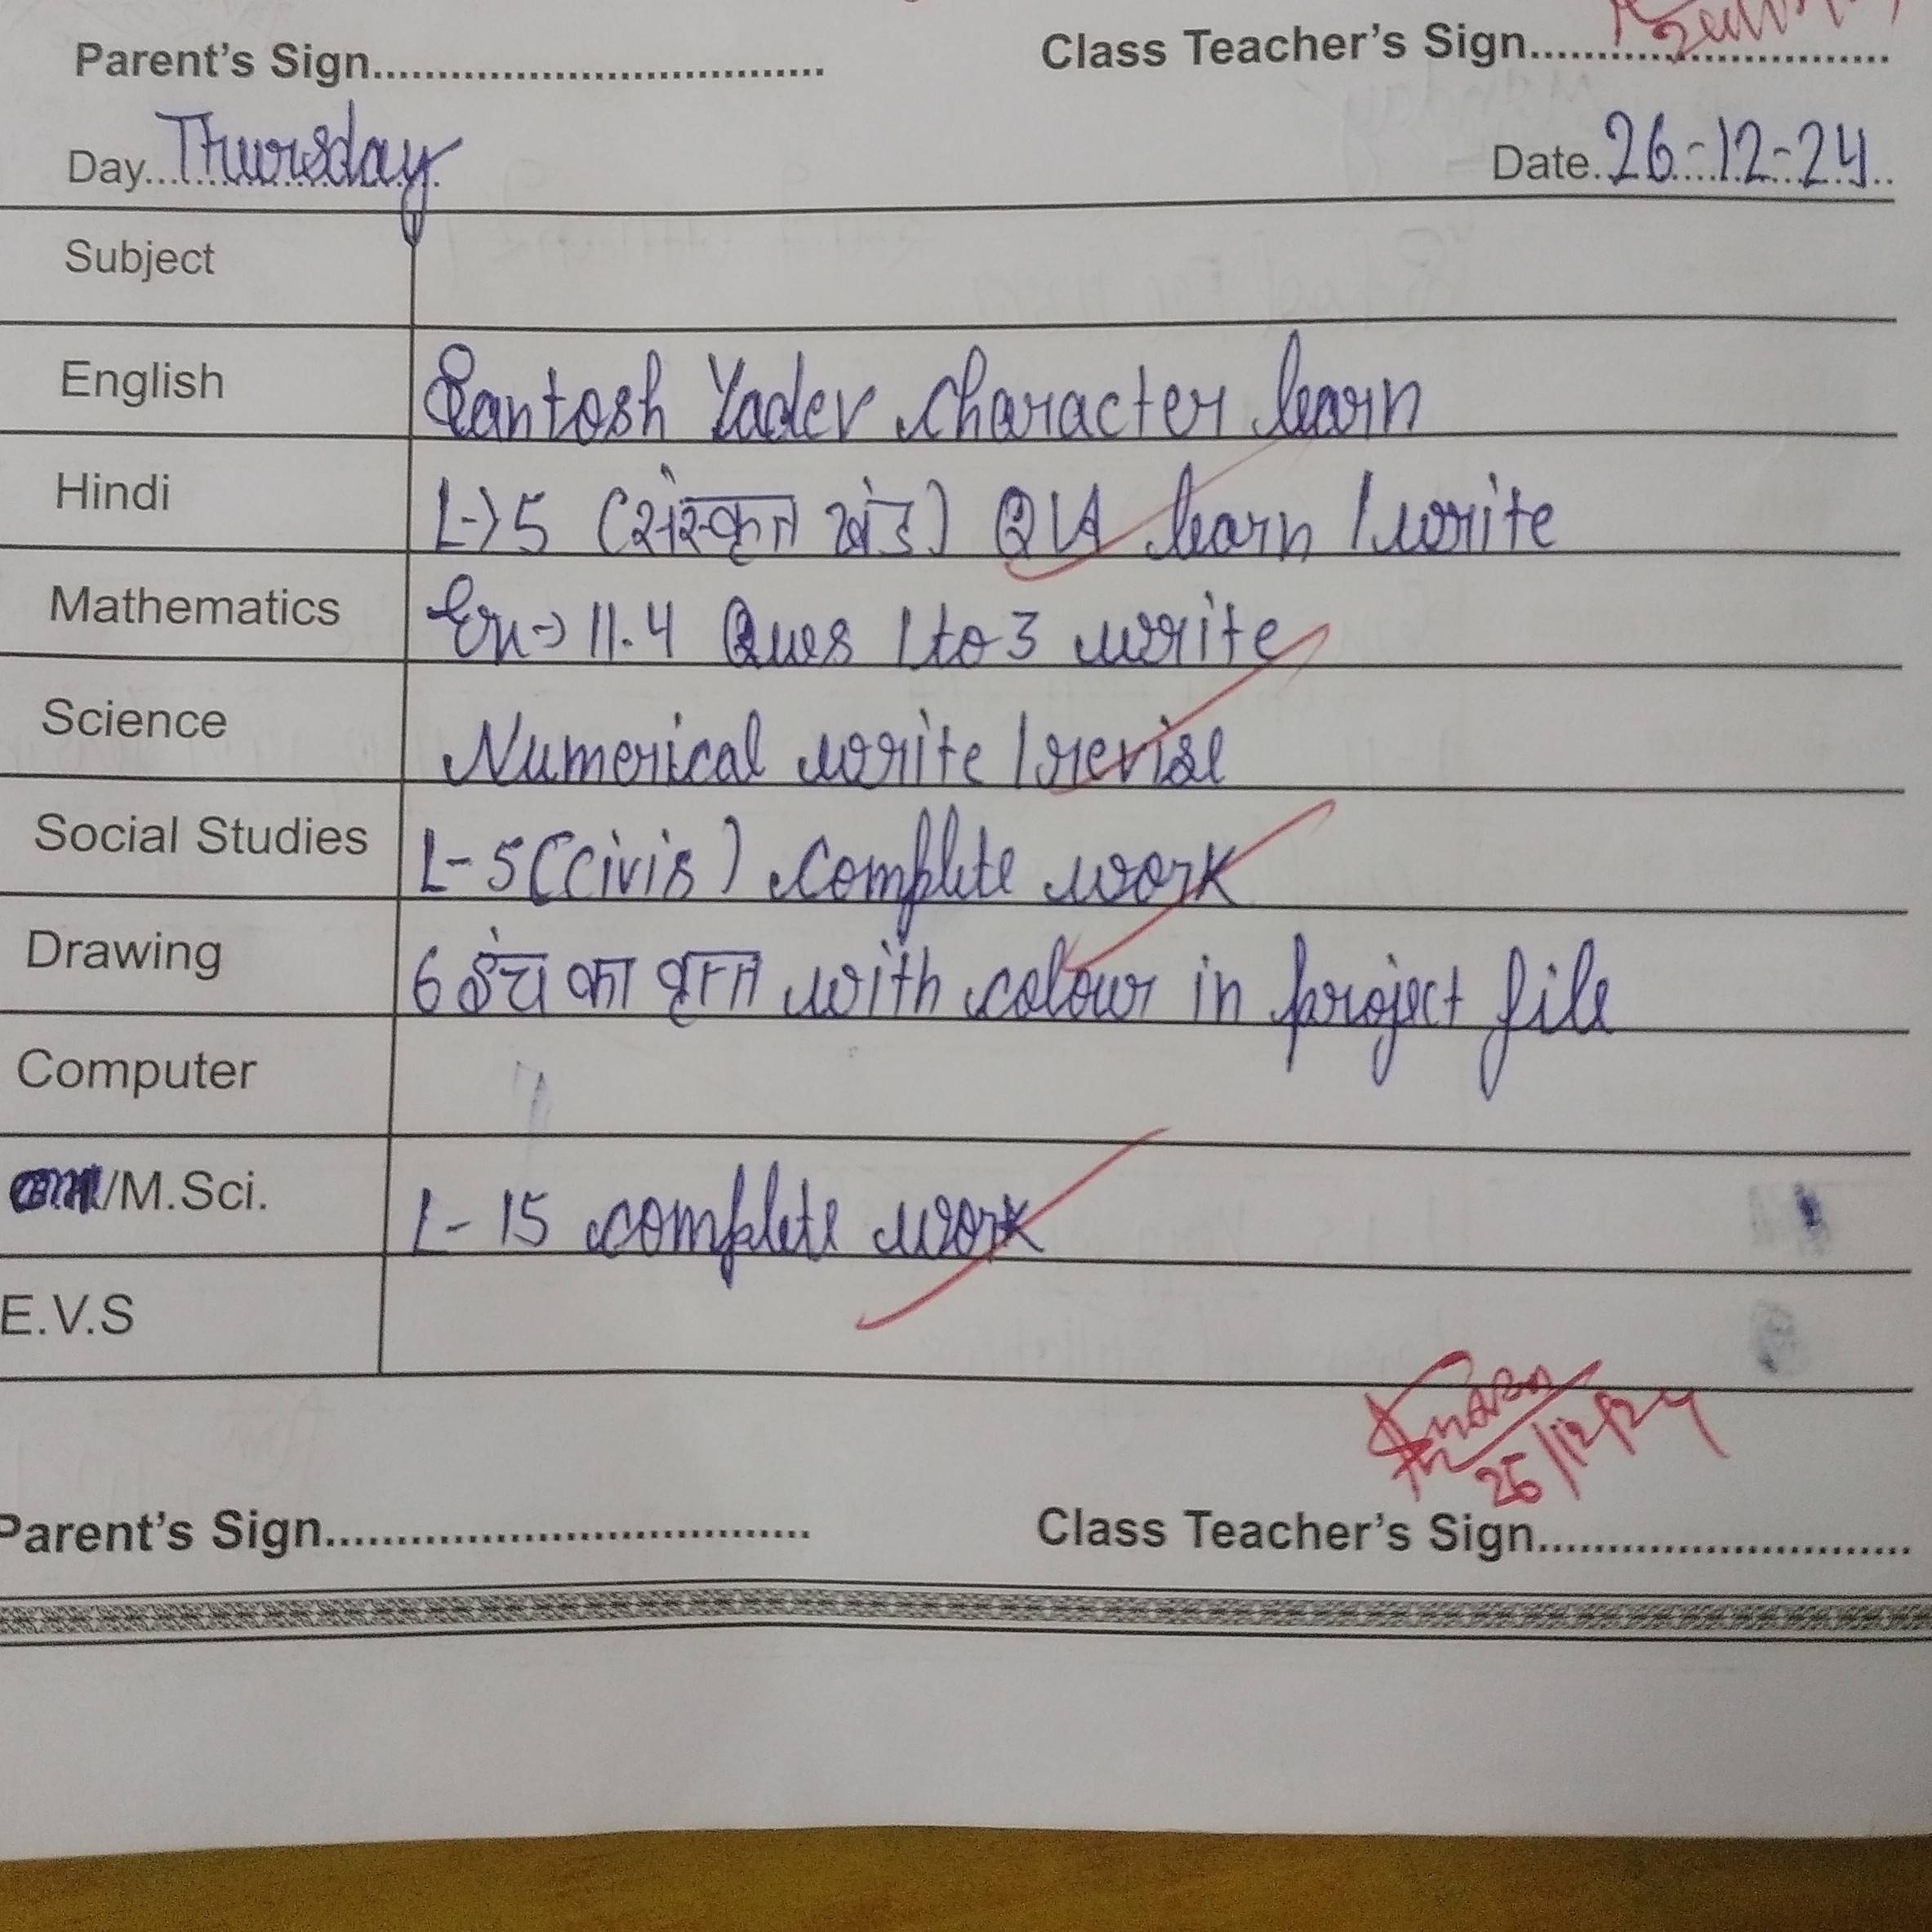 Parent's Sign.................................. Class Teacher's Sign............................
Day Thursday Date 26-12-24
Subject
English Santosh Yadev character learn
Hindi L→5 (संस्कृत खंड) Q/A learn / write
Mathematics Ex→ 11.4 Ques 1 to 3 write
Science Numerical write / revise
Social Studies L-5 (civis) complete work
Drawing 6 इंच का वृत्त with colour in project file
Computer
/M.Sci. L- 15 complete work
E.V.S
26/12/24
Parent's Sign.................................. Class Teacher's Sign............................